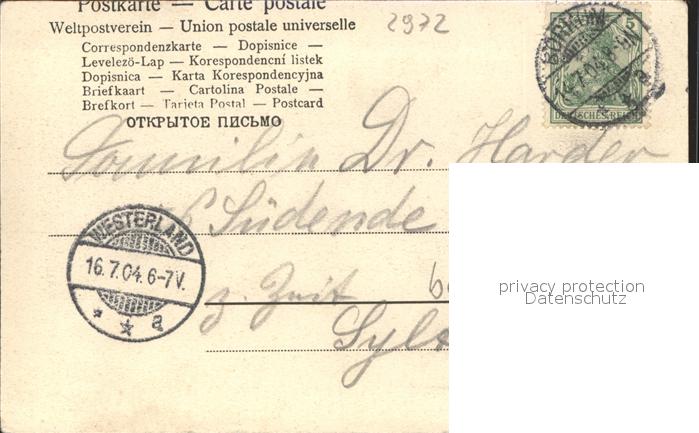 Postkarte — Carte postale
Weltpostverein — Union postale universelle
Correspondenzkarte — Dopisnice —
Levelező-Lap — Korespondencní listek
Dopisnica — Karta Korespondencyjna
Briefkaart — Cartolina Postale —
Brefkort — Tarjeta Postal — Postcard
ОТКРЫТОЕ ПИСЬМО
2972
5
DEUTSCHES REICH
BORKUM
14.7.04
a
Familie Dr. Harder
Südende
z. Zeit
Sylt
WESTERLAND
16.7.04. 6-7V.
* * a
privacy protection
Datenschutz